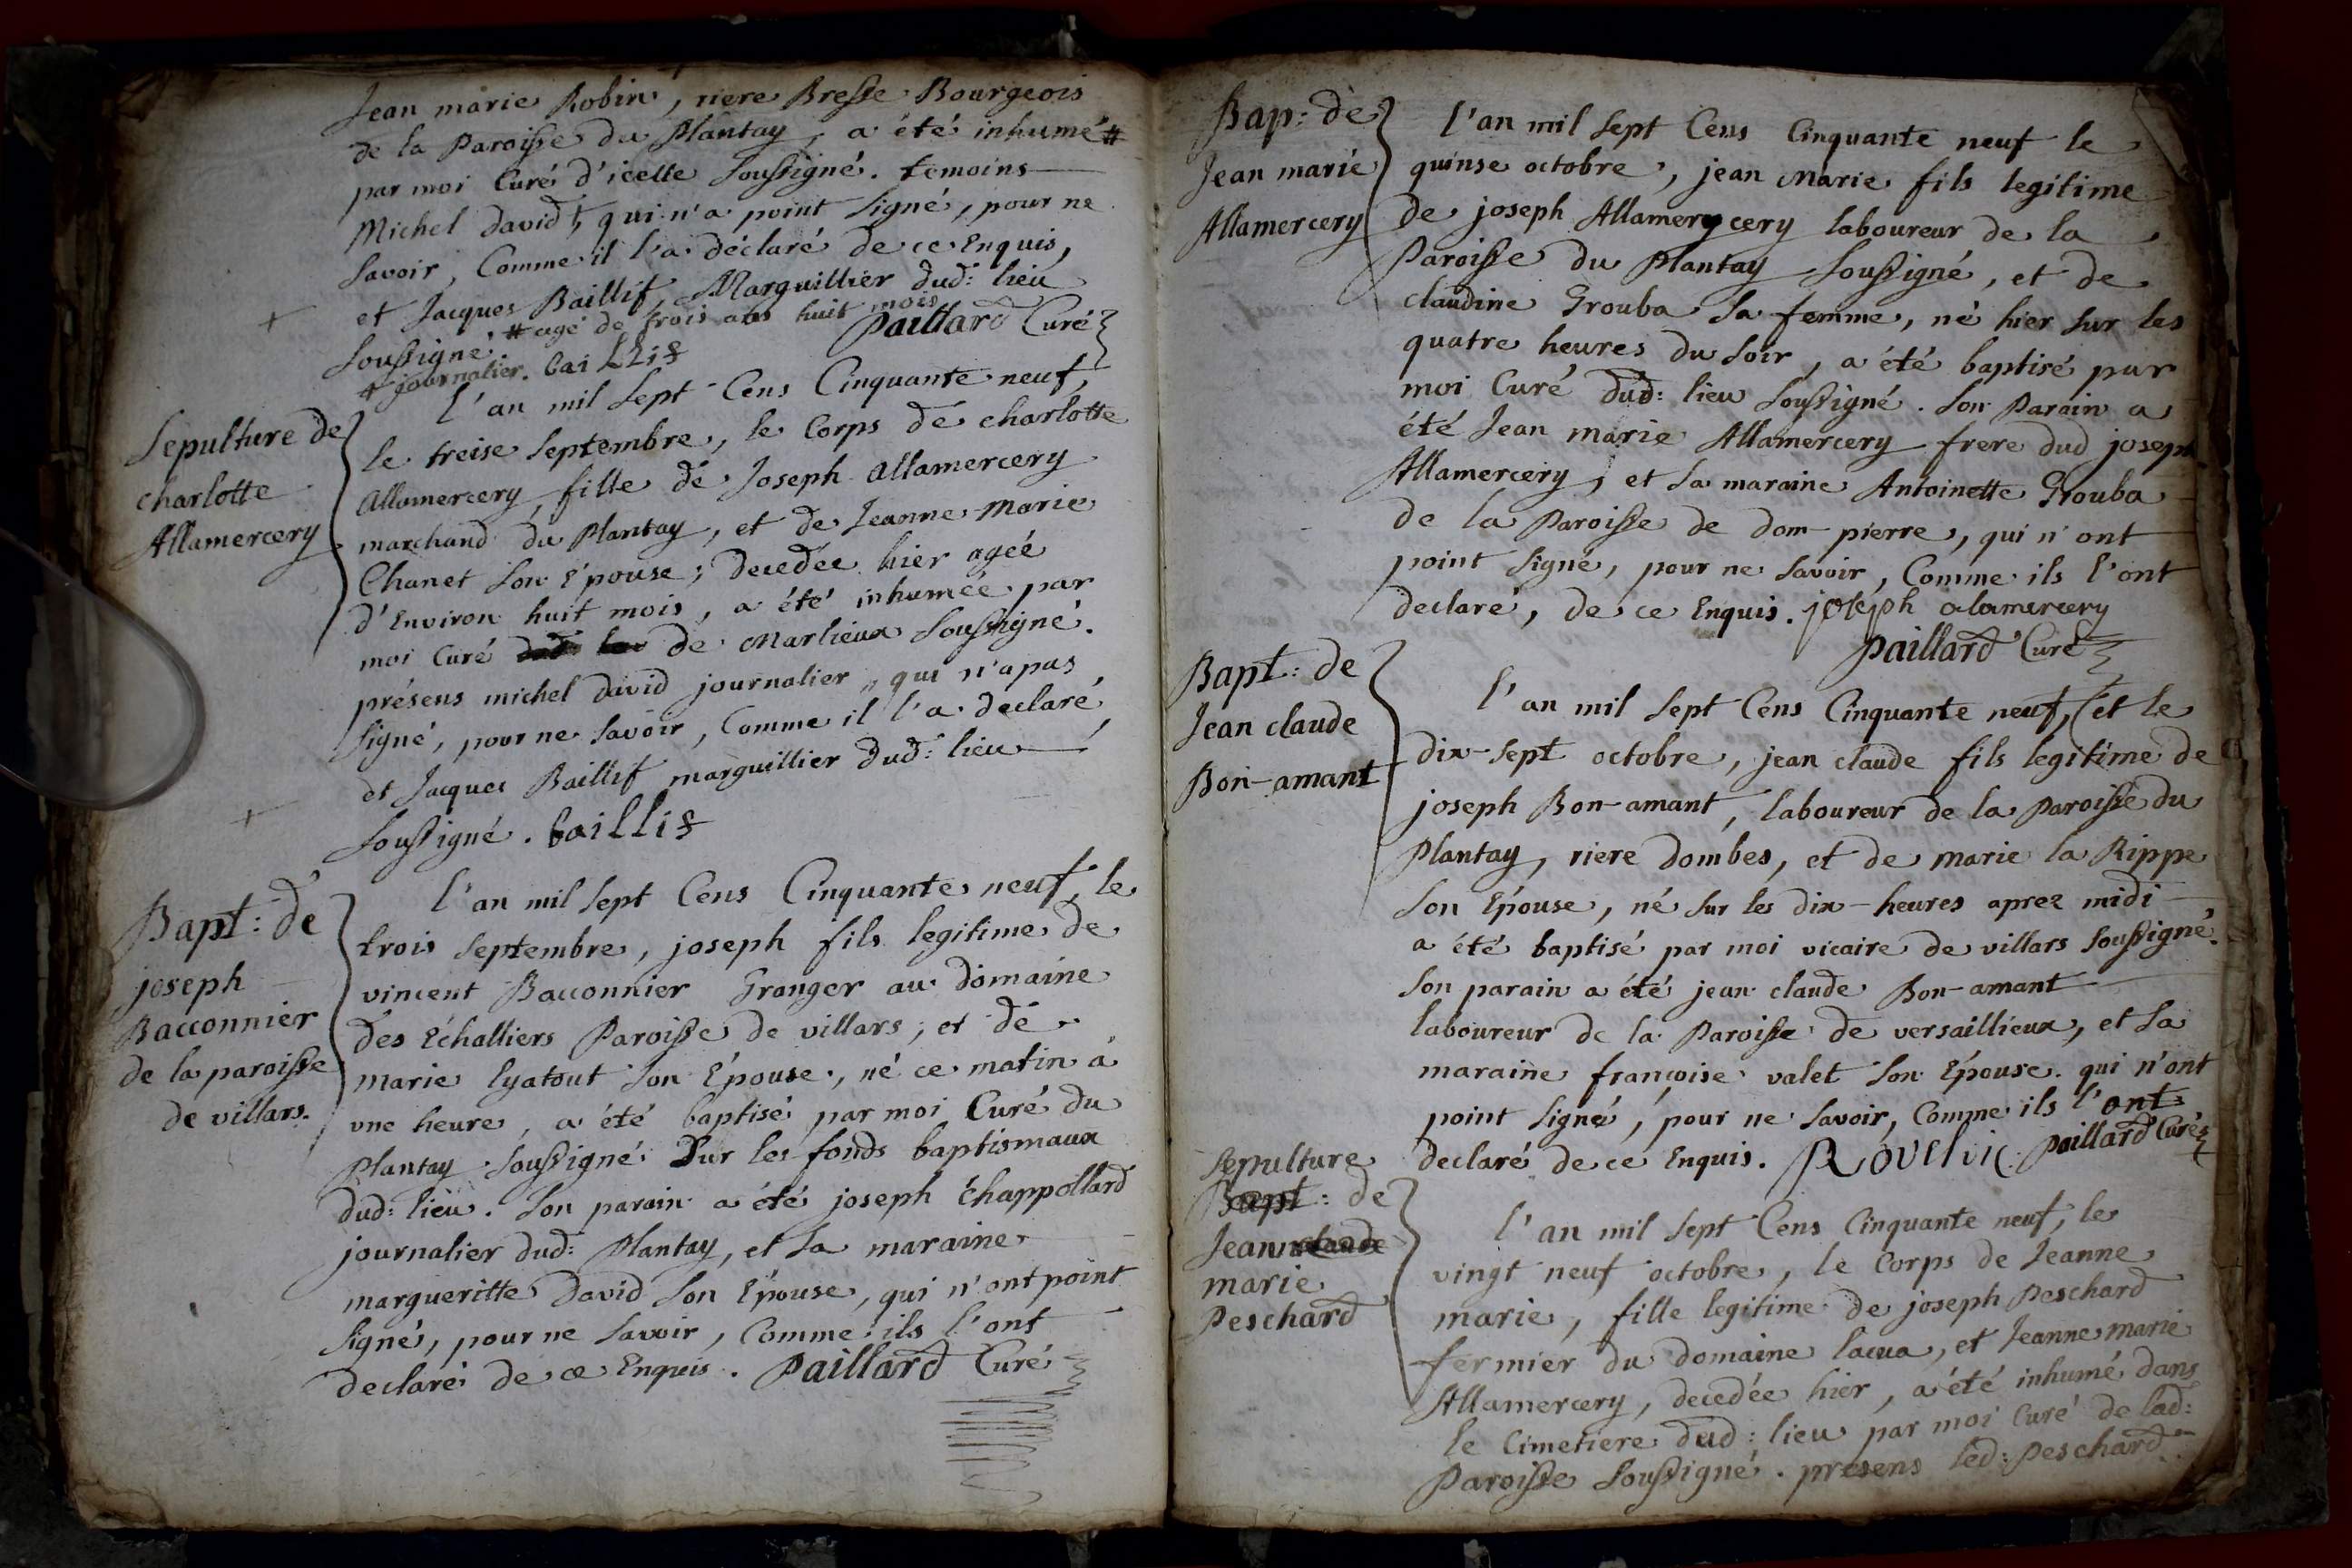 Jean marie Robin, riere Bresse Bourgeois
de la Paroisse du Plantay, a été inhumé #
par moi Curé d'icelle soussigné. temoins
Michel david ‡, qui n'a point signé, pour ne
savoir, Comme il l'a déclaré de ce Enquis,
et Jacques Baillif, Marguillier dud: lieu
soussigné. # agé de trois ans huit mois Paillard Curé
‡ journalier. bai LLif
Sepulture de
charlotte
Allamercery
l'an mil sept Cens Cinquante neuf,
le treise septembre, le Corps de charlotte
Allamercery, fille de Joseph allamercery
marchand du Plantay, et de Jeanne Marie
Chanet son Epouse; decedée hier agéé
d'Environ huit mois, a été inhumée par
moi Curé de Marlieux soussigné.
présens michel david journalier, qui n'a pas
signé, pour ne savoir, Comme il l'a declaré,
et Jacques Baillif marguillier dud: lieu
soussigné. baillif
Bapt: de
joseph
Bacconnier
de la paroisse
de villars.
l'an mil sept Cens Cinquante neuf, le
trois septembre, joseph fils legitime de
vincent Bacconnier Granger au domaine
des Echalliers Paroisse de villars, et de
marie lyatout son Epouse, né ce matin à
une heure, a été baptisé par moi Curé du
Plantay soussigné sur les fonds baptismaux
dud: lieu. son parain a été joseph Echappollard
journalier dud: Plantay, et sa maraine
margueritte david son Epouse, qui n'ont point
signé, pour ne savoir, Comme ils l'ont
declaré de ce Enquis. Paillard Curé
Bap: de
Jean marie
Allamercery
l'an mil sept Cens Cinquante neuf le
quinse octobre, jean Marie fils legitime
de joseph Allamerycery laboureur de la
Paroisse du Plantay soussigné, et de
claudine Grouba sa femme, né hier sur les
quatre heures du soir, a été baptisé par
moi Curé dud: lieu soussigné. son Parain a
été Jean marie Allamercery frere dud joseph
Allamercery, et sa maraine Antoinette Grouba
de la Paroisse de dom-pierre, qui n'ont
point signé, pour ne savoir, Comme ils l'ont
declaré, de ce Enquis. joseph alamercery
Paillard Curé
Bapt: de
Jean claude
Bon-amant
l'an mil sept Cens Cinquante neuf, et le
dix-sept octobre, jean claude fils legitime de
joseph Bon-amant, laboureur de la Paroisse du
Plantay, riere dombes, et de marie la Rippe
son Epouse, né sur les dix-heures aprez midi
a été baptisé par moi vicaire de villars soussigné.
son parain a été jean claude Bon-amant
laboureur de la Paroisse de versaillieux, et sa
maraine françoise valet son Epouse. qui n'ont
point signé, pour ne savoir, Comme ils l'ont
declaré de ce Enquis. Paillard Curé
Sepulture
Bapt: de
Jeanne claude
marie
Peschard
l'an mil sept Cens Cinquante neuf, le
vingt neuf octobre, le Corps de Jeanne
marie, fille legitime de joseph Peschard
fermier du domaine lacua, et Jeanne marie
Allamercery, decedée hier, a été inhumé dans
le Cimetiere dud: lieu par moi Curé de lad:
Paroisse soussigné. presens led: Peschard